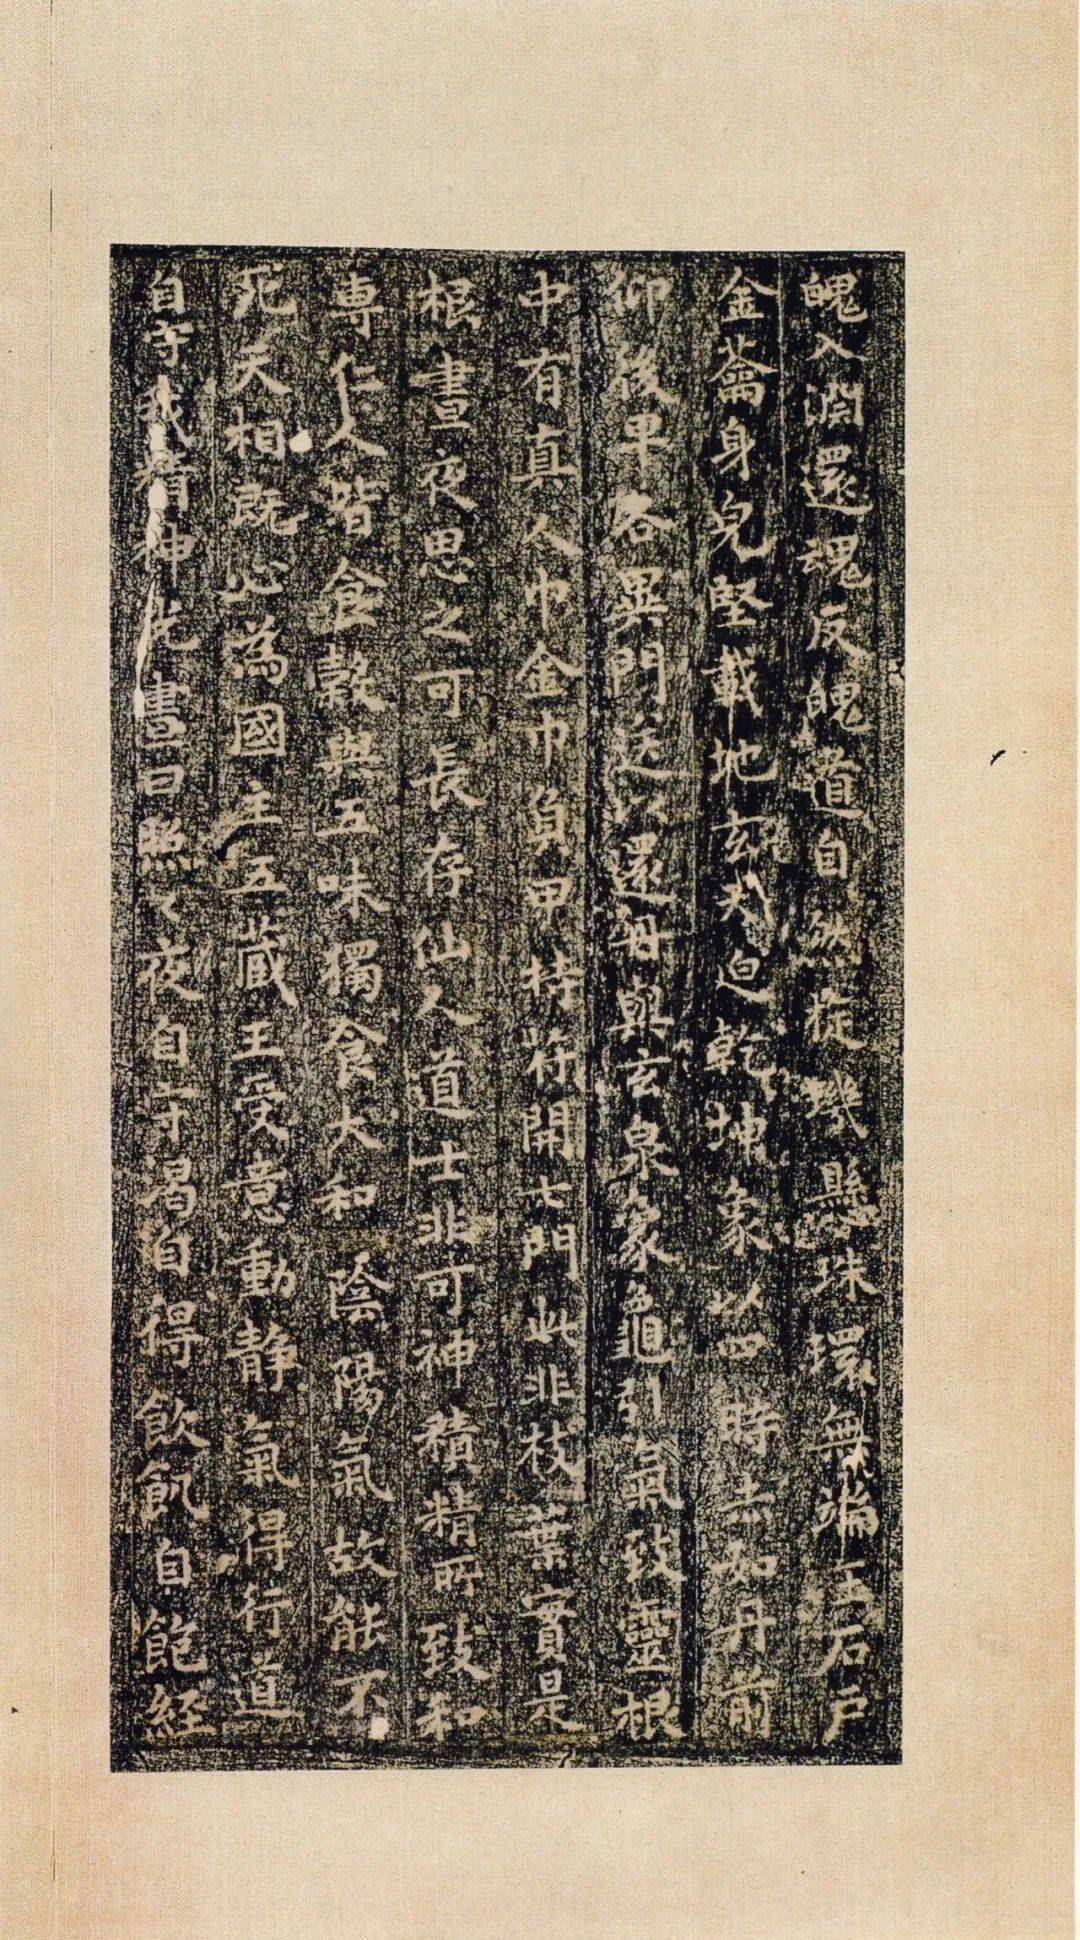 魄入淵還魂反魄道自然璇璣懸珠環無端玉石戶
金籥身皃堅載地玄天迫乾坤象以四時赤如丹前
仰後卑各異門送以還丹與玄泉象龜引氣致靈根
中有真人巾金巾負甲持符開七門此非枝葉實是
根晝夜思之可長存仙人道士非可神積精所致和
專仁人皆食穀與五味獨食大和陰陽氣故能不
死天相既心為國主五藏王受意動靜氣得行道
自守我精神光晝日照々夜自守渴自得飲飢自飽經